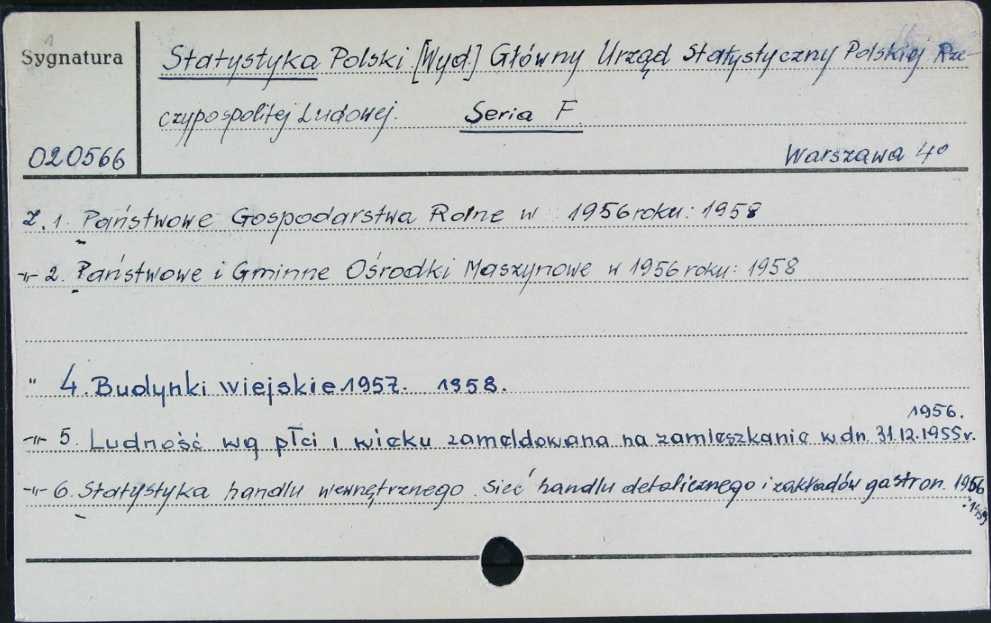 Sygnatura
Statystyka Polski [Wyd.] Główny Urząd Statystyczny Polskiej Rze-
czypospolitej Ludowej. Seria F.
020566
Warszawa 4°
z. 1. Państwowe Gospodarstwa Rolne w 1956 roku: 1958
-"- 2. Państwowe i Gminne Ośrodki Maszynowe w 1956 roku: 1958
" 4. Budynki wiejskie 1957. 1958.
1956.
-"- 5. Ludność wg płci i wieku zameldowana na zamieszkanie w dn. 31.12.1955 r.
-"- 6. Statystyka handlu wewnętrznego. Sieć handlu detalicznego i zakładów gastron. 1956